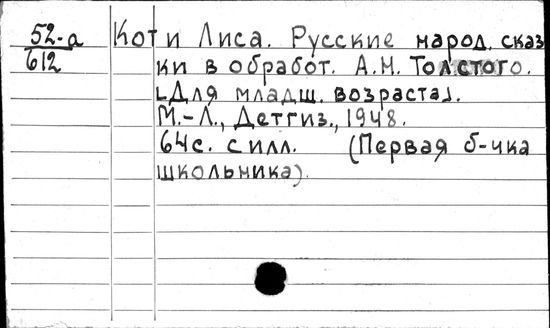 52-а
612
Кот и Лиса. Русские народ. сказ
ки в обработ. А.Н. Толстого.
[Для младш. возраста].
М.-Л., Детгиз., 1948.
64с. с илл. (Первая б-чка
школьника).